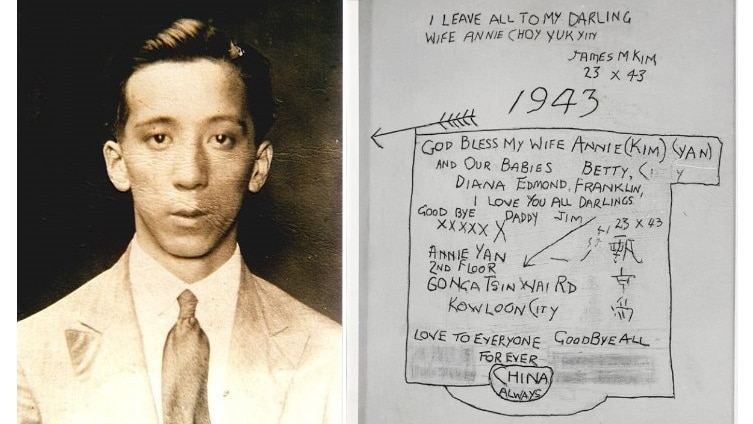 I LEAVE ALL TO MY DARLING
WIFE ANNIE CHOY YUK YIN
JAMES M KIM
23 X 43
1943
GOD BLESS MY WIFE ANNIE (KIM) (YAN)
AND OUR BABIES BETTY,
DIANA EDMOND, FRANKLIN,
I LOVE YOU ALL DARLINGS
GOOD BYE DADDY JIM
XXXXX X
23 X 43
ANNIE YAN
2ND FLOOR
TSIN WAI RD
KOWLOON CITY
LOVE TO EVERYONE GOODBYE ALL
FOR EVER
CHINA
ALWAYS